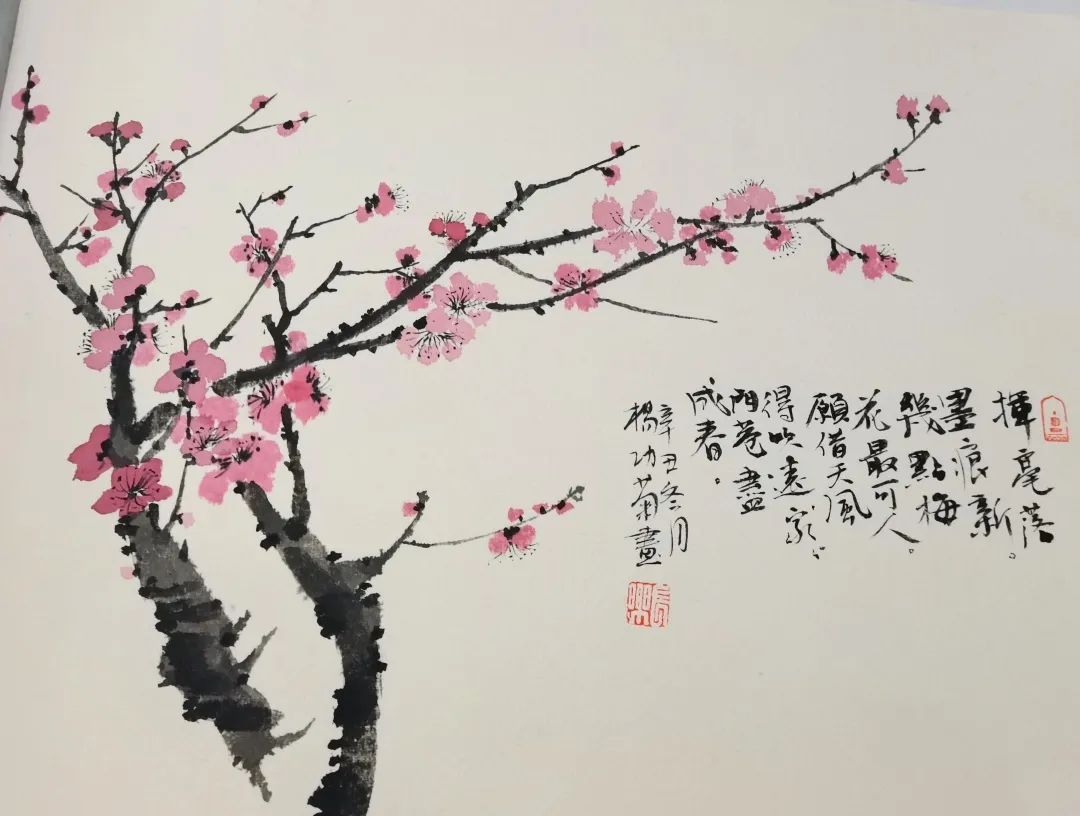 揮毫落
墨痕新。
幾點梅
花最可人。
願借天風
得吹遠家〻
門巷盡
成春。
辛丑冬月
楊功菊畫
長樂